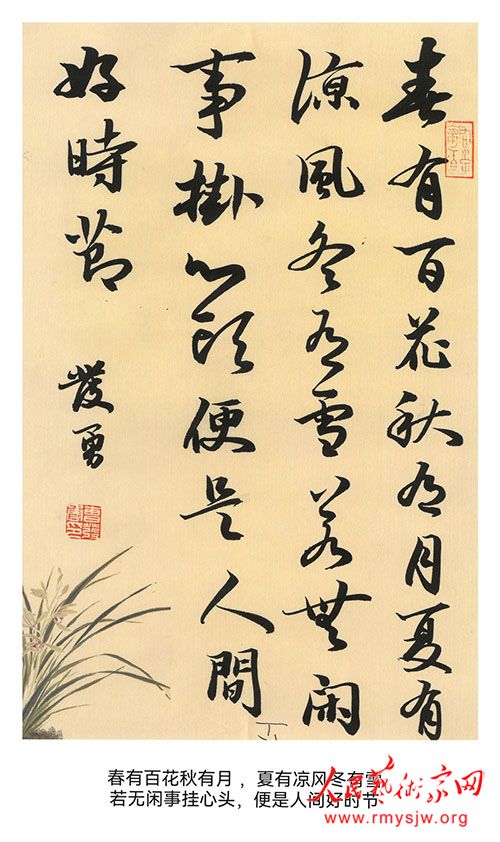 春有百花秋有月夏有
涼風冬有雪若無閑
事掛心頭便是人間
好時節
發勇
春有百花秋有月，夏有凉风冬有雪，
若无闲事挂心头，便是人间好时节
人民藝術家网
www.rmysjw.org